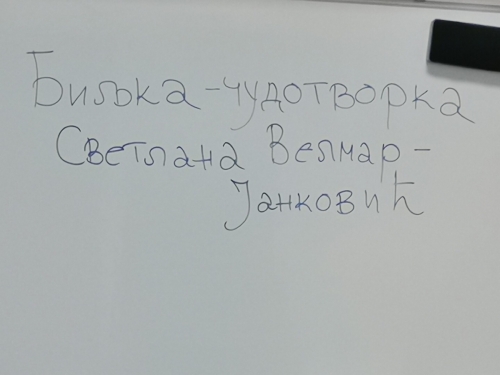 Биљка-чудотворка
Светлана Велмар-
Јанковић